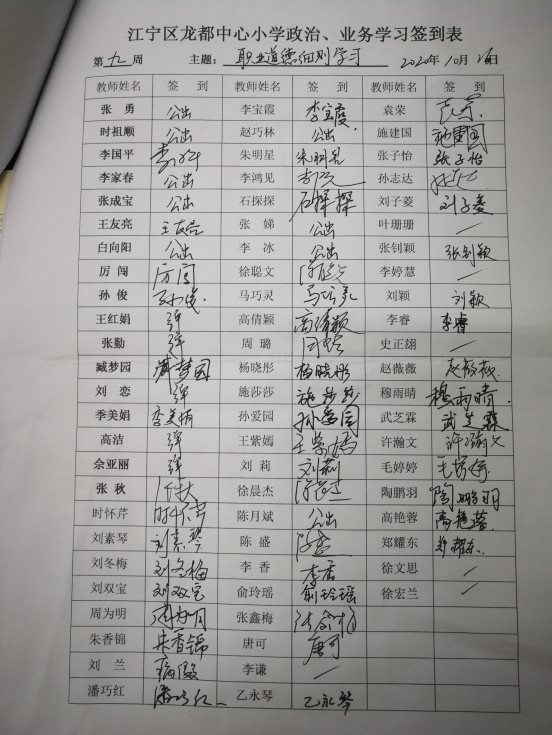 江宁区龙都中心小学政治、业务学习签到表
第 九 周 主题： 职业道德细则学习 2020年10月16日
教师姓名 签 到 教师姓名 签 到 教师姓名 签 到
张 勇 公出 李宝霞 李宝霞 袁荣 袁荣
时祖顺 公出 赵巧林 公出 施建国 施建国
李国平 朱明星 朱明星 张子怡 张子怡
李家春 公出 李鸿见 孙志达
张成宝 公出 石探探 石探探 刘子菱 刘子菱
王友亮 王友亮 张 娣 公出 叶珊珊 —
白向阳 公出 李 冰 公出 张钊颖 张钊颖
厉 闯 厉闯 徐聪文 李婷慧 —
孙 俊 孙俊 马巧灵 马巧灵 刘颖 刘颖
王红娟 高倩颖 高倩颖 李睿 李睿
张勤 周 璐 周璐 史正翃 —
臧梦园 臧梦园 杨晓彤 杨晓彤 赵薇薇 赵薇薇
刘 恋 施莎莎 施莎莎 穆雨晴 穆雨晴
季美娟 季美娟 孙爱园 孙爱园 武芝霖 武芝霖
高洁 王紫嫣 王紫嫣 许瀚文 许瀚文
佘亚丽 刘 莉 刘莉 毛婷婷 毛婷婷
张 秋 徐晨杰 陶鹏羽 陶鹏羽
时怀芹 时怀芹 陈月斌 公出 高艳蓉 高艳蓉
刘素琴 刘素琴 陈 盛 陈盛 郑耀东 郑耀东
刘冬梅 刘冬梅 李 香 李香 徐文思 —
刘双宝 刘双宝 俞玲瑶 俞玲瑶 徐宏兰 —
周为明 周为明 张鑫梅
朱香锦 朱香锦 唐可 唐可
刘 兰 病假 李谦 —
潘巧红 潘巧红 乙永琴 乙永琴